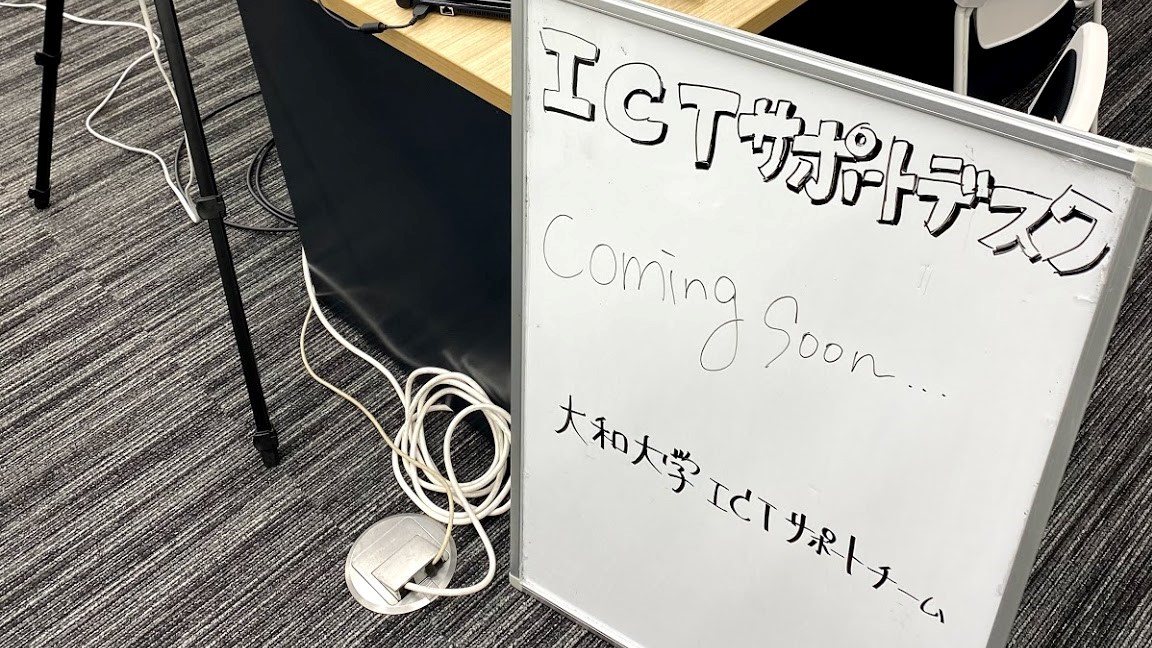 ICTサポートデスク
Coming Soon...
大和大学ICTサポートチーム